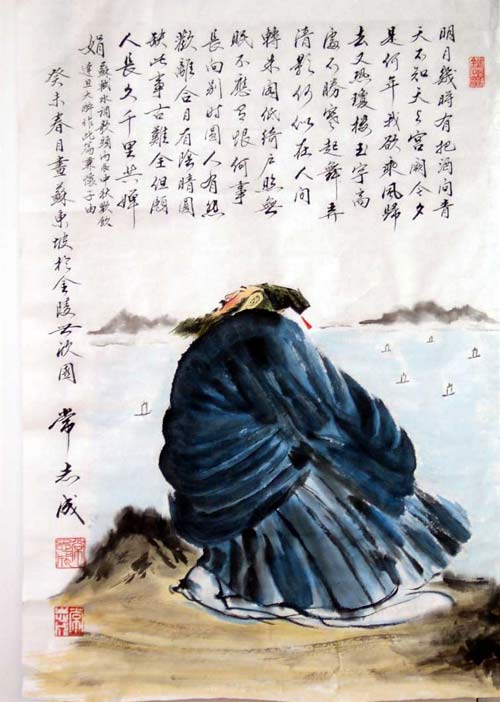 明月幾時有把酒问青
天不知天上宫阙今夕
是何年我欲乘风歸
去又恐瓊楼玉宇高
處不勝寒起舞弄
清影何似在人间
轉朱阁低绮户照無
眠不應有恨何事
長向别时圆人有悲
歡離合月有陰晴圆
缺此事古難全但願
人長久千里共嬋
娟
蘇軾水调歌頭丙辰中秋歡飲
達旦大醉作此篇兼懷子由
癸未春月畫蘇東坡於金陵圖
常志成